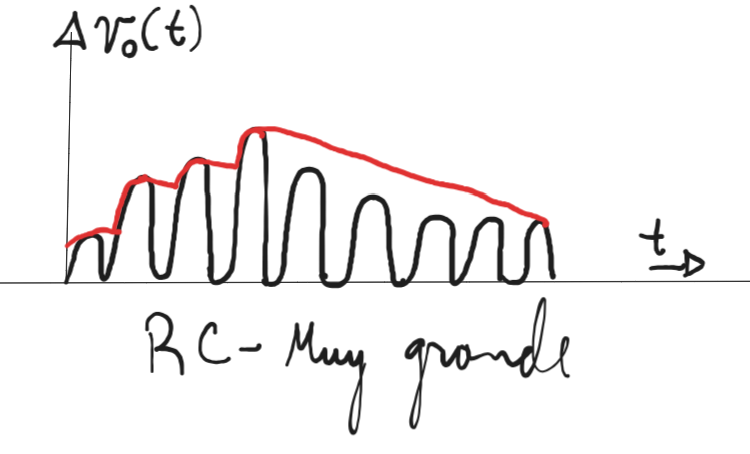 v₀(t)
t
RC - Muy grande